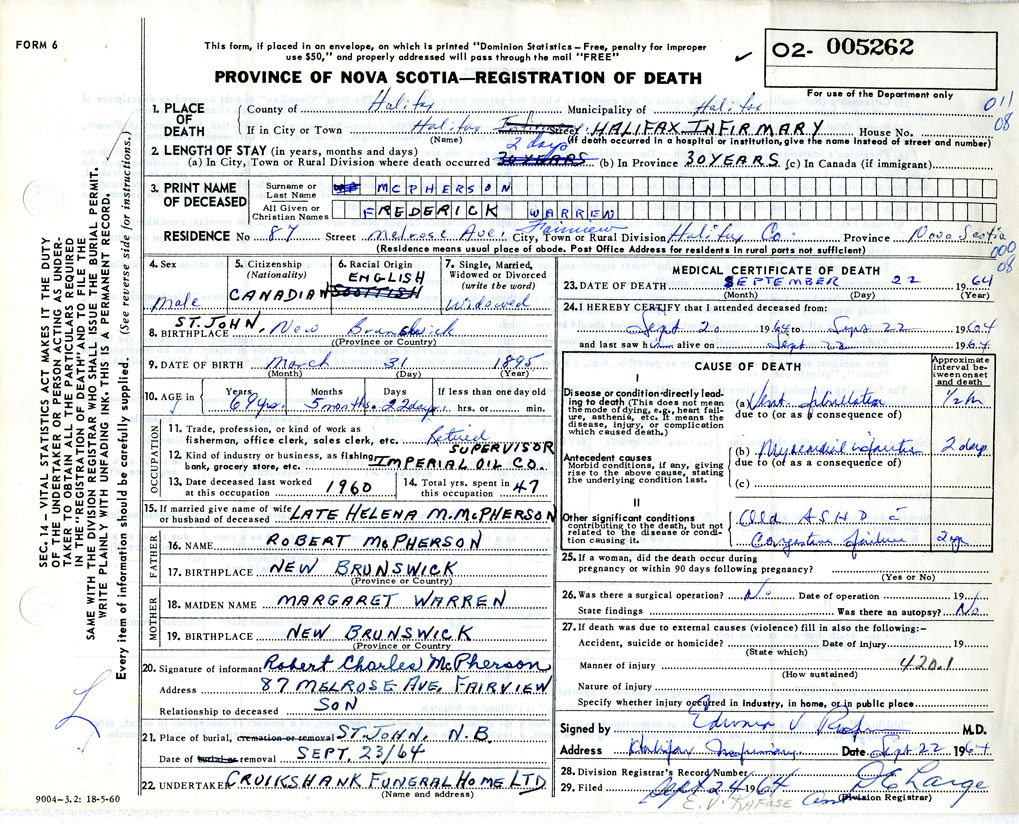 FORM 6
This form, if placed in an envelope, on which is printed "Dominion Statistics – Free, penalty for improper
use $50," and properly addressed will pass through the mail "FREE"
PROVINCE OF NOVA SCOTIA—REGISTRATION OF DEATH
✓ 02- 005262
For use of the Department only
011
08
1. PLACE OF DEATH
County of Halifax Municipality of Halifax
If in City or Town Halifax Street HALIFAX INFIRMARY House No.
(Name) (If death occurred in a hospital or institution, give the name instead of street and number)
2. LENGTH OF STAY (in years, months and days) 2 days
(a) In City, Town or Rural Division where death occurred 30 YEARS (b) In Province 30 YEARS (c) In Canada (if immigrant)
3. PRINT NAME OF DECEASED
Surname or Last Name MCPHERSON
All Given or Christian Names FREDERICK WARREN
RESIDENCE No 87 Street Melrose Ave. Fairview City, Town or Rural Division Halifax Co. Province Nova Scotia
(Residence means usual place of abode. Post Office Address for residents in rural parts not sufficient)
000
08
4. Sex Male
5. Citizenship (Nationality) CANADIAN
6. Racial Origin ENGLISH SCOTTISH
7. Single, Married, Widowed or Divorced (write the word) Widowed
8. BIRTHPLACE ST. JOHN, New Brunswick
(Province or Country)
9. DATE OF BIRTH March 31 1895
(Month) (Day) (Year)
10. AGE in Years Months Days If less than one day old
69 yrs. 5 months 22 days. hrs. or min.
OCCUPATION
11. Trade, profession, or kind of work as
fisherman, office clerk, sales clerk, etc. Retired
SUPERVISOR
12. Kind of industry or business, as fishing,
bank, grocery store, etc. IMPERIAL OIL CO.
13. Date deceased last worked
at this occupation 1960
14. Total yrs. spent in
this occupation 47
15. If married give name of wife
or husband of deceased LATE HELENA M. MCPHERSON
FATHER
16. NAME ROBERT MCPHERSON
17. BIRTHPLACE NEW BRUNSWICK
(Province or Country)
MOTHER
18. MAIDEN NAME MARGARET WARREN
19. BIRTHPLACE NEW BRUNSWICK
(Province or Country)
20. Signature of informant Robert Charles McPherson
Address 87 MELROSE AVE, FAIRVIEW
Relationship to deceased SON
21. Place of burial, cremation or removal ST. JOHN, N.B.
Date of burial or removal SEPT. 23/64
22. UNDERTAKER CRUIKSHANK FUNERAL HOME LTD
(Name and address)
MEDICAL CERTIFICATE OF DEATH
23. DATE OF DEATH SEPTEMBER 22 1964
(Month) (Day) (Year)
24. I HEREBY CERTIFY that I attended deceased from:
Sept 20 1964 to Sept 22 1964
and last saw him alive on Sept 22 1964
CAUSE OF DEATH
Approximate interval between onset and death
I
Disease or condition directly leading to death (This does not mean the mode of dying, e.g., heart failure, asthenia, etc. It means the disease, injury, or complication which caused death.)
(a) Vent. fibrillation 1/2 hr
due to (or as a consequence of)
Antecedent causes
Morbid conditions, if any, giving rise to the above cause, stating the underlying condition last.
(b) Myocardial infarction 2 days
due to (or as a consequence of)
(c)
II
Other significant conditions contributing to the death, but not related to the disease or condition causing it.
Old ASHD c̄
Congestive failure 2 yr
25. If a woman, did the death occur during
pregnancy or within 90 days following pregnancy?
(Yes or No)
26. Was there a surgical operation? No Date of operation 19
State findings Was there an autopsy? No
27. If death was due to external causes (violence) fill in also the following:–
Accident, suicide or homicide? Date of injury 19
(State which)
Manner of injury 420.1
(How sustained)
Nature of injury
Specify whether injury occurred in Industry, in home, or in public place
Signed by Edwin V. Rafuse M.D.
Address Halifax Infirmary Date Sept 22 1964
28. Division Registrar's Record Number
29. Filed Sept 24 1964 D E Large
E. V. RAFUSE (Division Registrar)
SEC. 14 – VITAL STATISTICS ACT MAKES IT THE DUTY
OF THE UNDERTAKER OR PERSON ACTING AS UNDER-
TAKER TO OBTAIN ALL THE PARTICULARS REQUIRED
IN THE "REGISTRATION OF DEATH" AND TO FILE THE
SAME WITH THE DIVISION REGISTRAR WHO SHALL ISSUE THE BURIAL PERMIT.
WRITE PLAINLY WITH UNFADING INK. THIS IS A PERMANENT RECORD.
Every item of information should be carefully supplied. (See reverse side for instructions.)
9004–3.2: 18-5-60